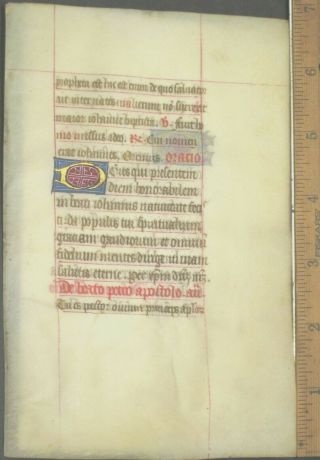 propheta est hic est enim de quo saluator
ait inter natos mulierum nō surrexit
maior iohanne baptista. V. fuit ho
mo missus a deo. R. Cui nomen
erat iohannes. Oremus. oratio
Deus qui presentem
diem honorabilem
in beati iohannis natiuitate feci
sti da populis tuis spiritualium
graciam gaudiorum et omnium
fidelium mentes dirige in uiam
salutis eterne. per xp̄m
De beato petro apostolo añ
Tu es pastor ouium princeps aplor
7
6
5
4
3
2
1